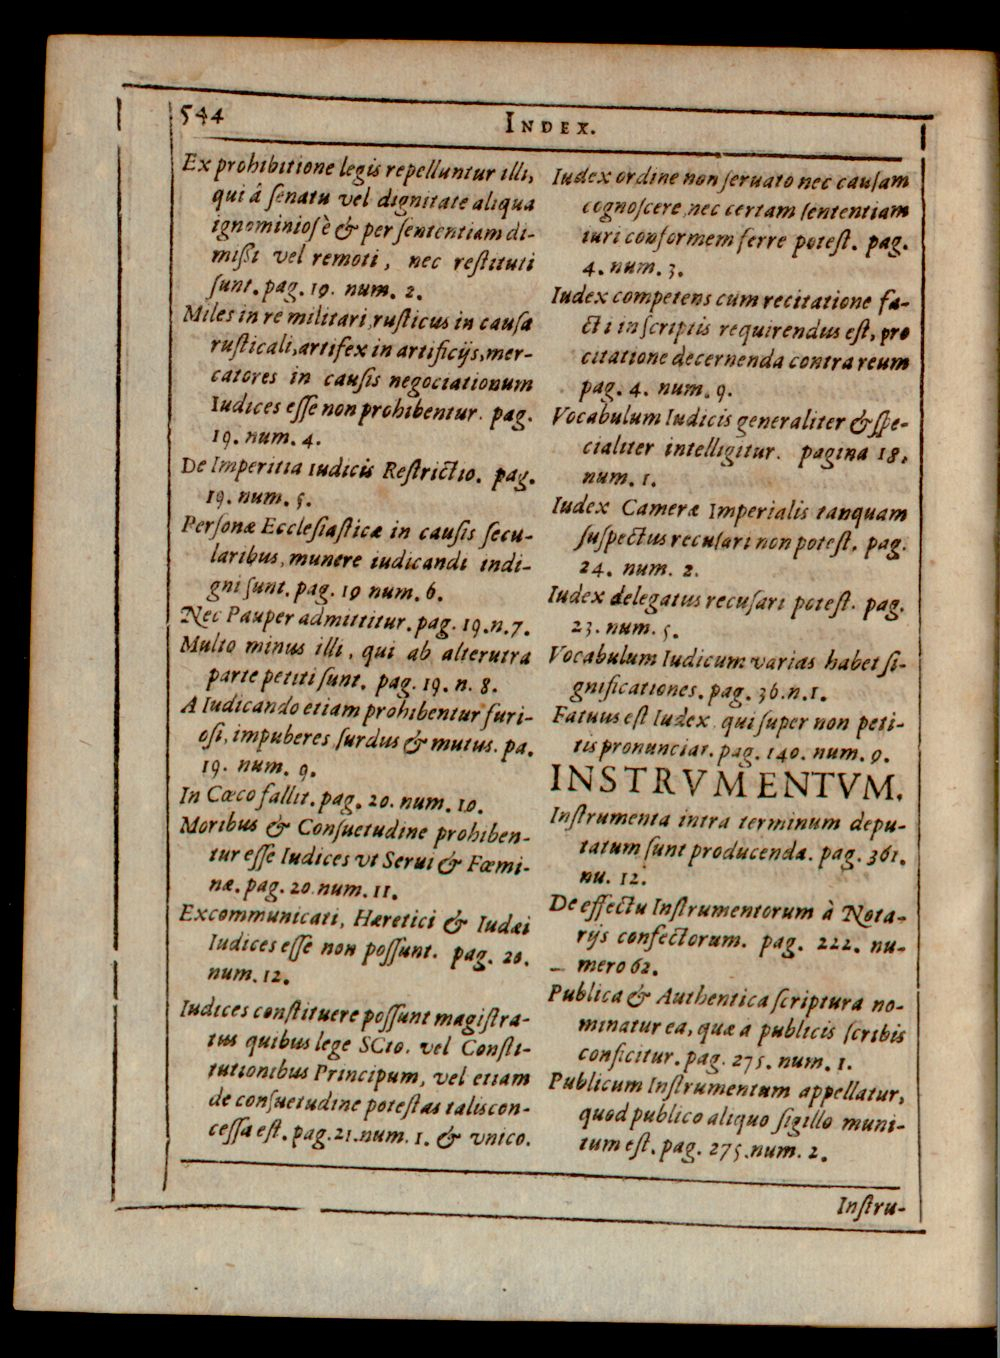 544
INDEX.
Ex prohibitione legis repelluntur illi,
qui â ſenatu vel dignitate aliqua
ignominioſè & per ſententiam di-
miſſi vel remoti, nec reſtituti
ſunt. pag. 19. num. 2.
Miles in re militari, ruſticus in cauſa
ruſticali, artifex in artificijs, mer-
catores in cauſis negociationum
Iudices eſſe non prohibentur. pag.
19. num. 4.
De Imperitia iudicis Reſtrictio. pag.
19. num. 5.
Perſonæ Eccleſiaſticæ in cauſis ſecu-
laribus, munere iudicandi indi-
gni ſunt. pag. 19 num. 6.
Nec Pauper admittitur. pag. 19. n. 7.
Multo minus illi, qui ab alterutra
parte petiti ſunt. pag. 19. n. 8.
A Iudicando etiam prohibentur furi-
oſi, impuberes ſurdus & mutus. pa.
19. num. 9.
In Cœco fallit. pag. 20. num. 10.
Moribus & Conſuetudine prohiben-
tur eſſe Iudices vt Serui & Fœmi-
næ. pag. 20. num. 11.
Excommunicati, Hæretici & Iudæi
Iudices eſſe non poſſunt. pag. 20.
num. 12.
Iudices conſtituere poſſunt magiſtra-
tus quibus lege SCto. vel Conſti-
tutionibus Principum, vel etiam
de conſuetudine poteſtas talis con-
ceſſa eſt. pag. 21. num. 1. & vnico.
Iudex ordine non ſeruato nec cauſam
cognoſcere, nec certam ſententiam
iuri conformem ferre poteſt. pag.
4. num. 3.
Iudex competens cum recitatione fa-
cti in ſcriptis requirendus eſt, pro
citatione decernenda contra reum
pag. 4. num. 9.
Vocabulum Iudicis generaliter & ſpe-
cialiter intelligitur. pagina 18.
num. 1.
Iudex Cameræ Imperialis tanquam
ſuſpectus recuſari non poteſt. pag.
24. num. 2.
Iudex delegatus recuſari poteſt. pag.
23. num. 5.
Vocabulum Iudicum varias habet ſi-
gnificationes. pag. 36. n. 1.
Fatuus eſt Iudex qui ſuper non peti-
tis pronunciat. pag. 140. num. 9.
INSTRVMENTVM.
Inſtrumenta intra terminum depu-
tatum ſunt producenda. pag. 361.
nu. 12.
De effectu Inſtrumentorum à Nota-
rijs confectorum. pag. 222. nu-
mero 62.
Publica & Authentica ſcriptura no-
minatur ea, quæ a publicis ſcribis
conficitur. pag. 275. num. 1.
Publicum Inſtrumentum appellatur,
quod publico aliquo ſigillo muni-
tum eſt. pag. 275. num. 2.
Inſtru-